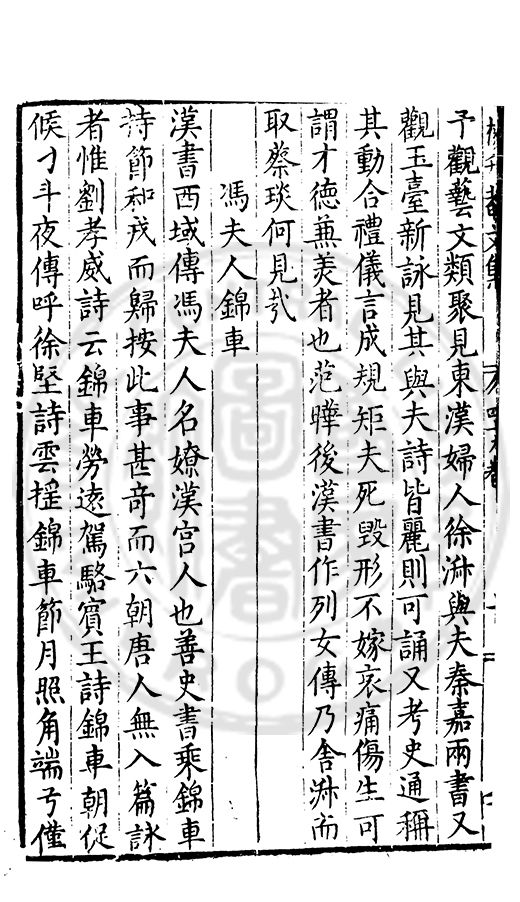 予觀藝文類聚見東漢婦人徐淑與夫秦嘉兩書又
觀玉臺新詠見其與夫詩皆麗則可誦又考史通稱
其動合禮儀言成規矩夫死毀形不嫁哀痛傷生可
謂才德兼美者也范曄後漢書作列女傳乃舍淑而
取蔡琰何見㢤
馮夫人錦車
漢書西域傳馮夫人名嫽漢宮人也善史書乘錦車
持節和戎而歸按此事甚奇而六朝唐人無入篇詠
者惟劉孝威詩云錦車勞遠駕駱賓王詩錦車朝促
候刁斗夜傳呼徐堅詩雲摇錦車節月照角端弓僅